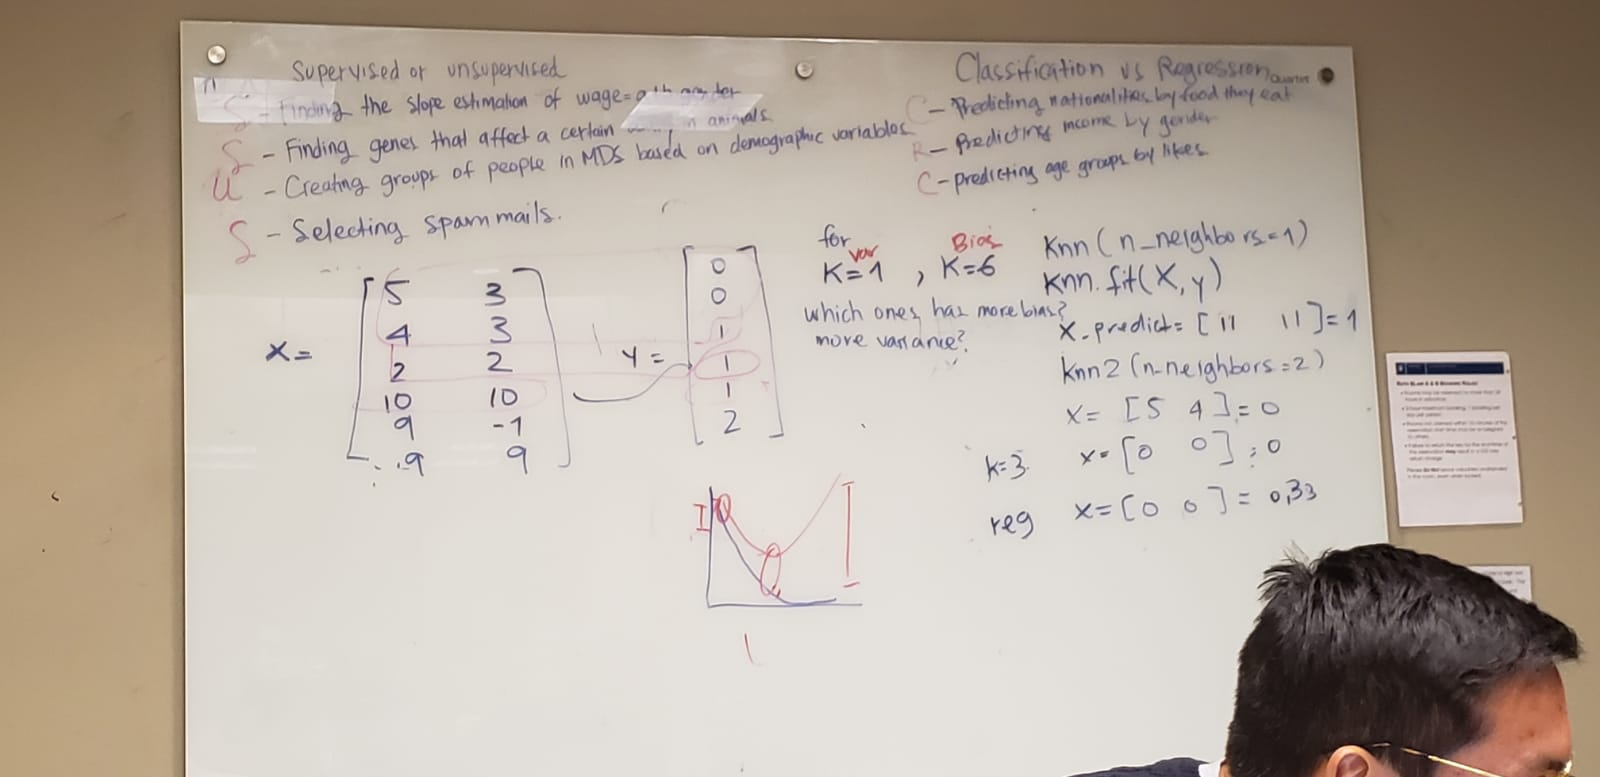 Supervised or unsupervised
S - Finding the slope estimation of wage= gender
S - Finding genes that affect a certain in animals
U - Creating groups of people in MDS based on demographic variables
S - Selecting spam mails.
X = [5 3
4 3
2 2
10 10
9 -1
-9 9]
Y = [0
0
1
1
1
2]
Classification vs Regression
C - Predicting nationalities by food they eat
R - Predicting income by gender
C - predicting age groups by likes
for
var Bias
K=1 , K=6
which ones has more bias?
more variance?
Knn (n_neighbors=1)
Knn.fit(X,y)
X-predict= [11 11]=1
Knn2 (n-neighbors=2)
X= [5 4]=0
k=3 x= [0 0]=0
reg x=[0 0]=0,33